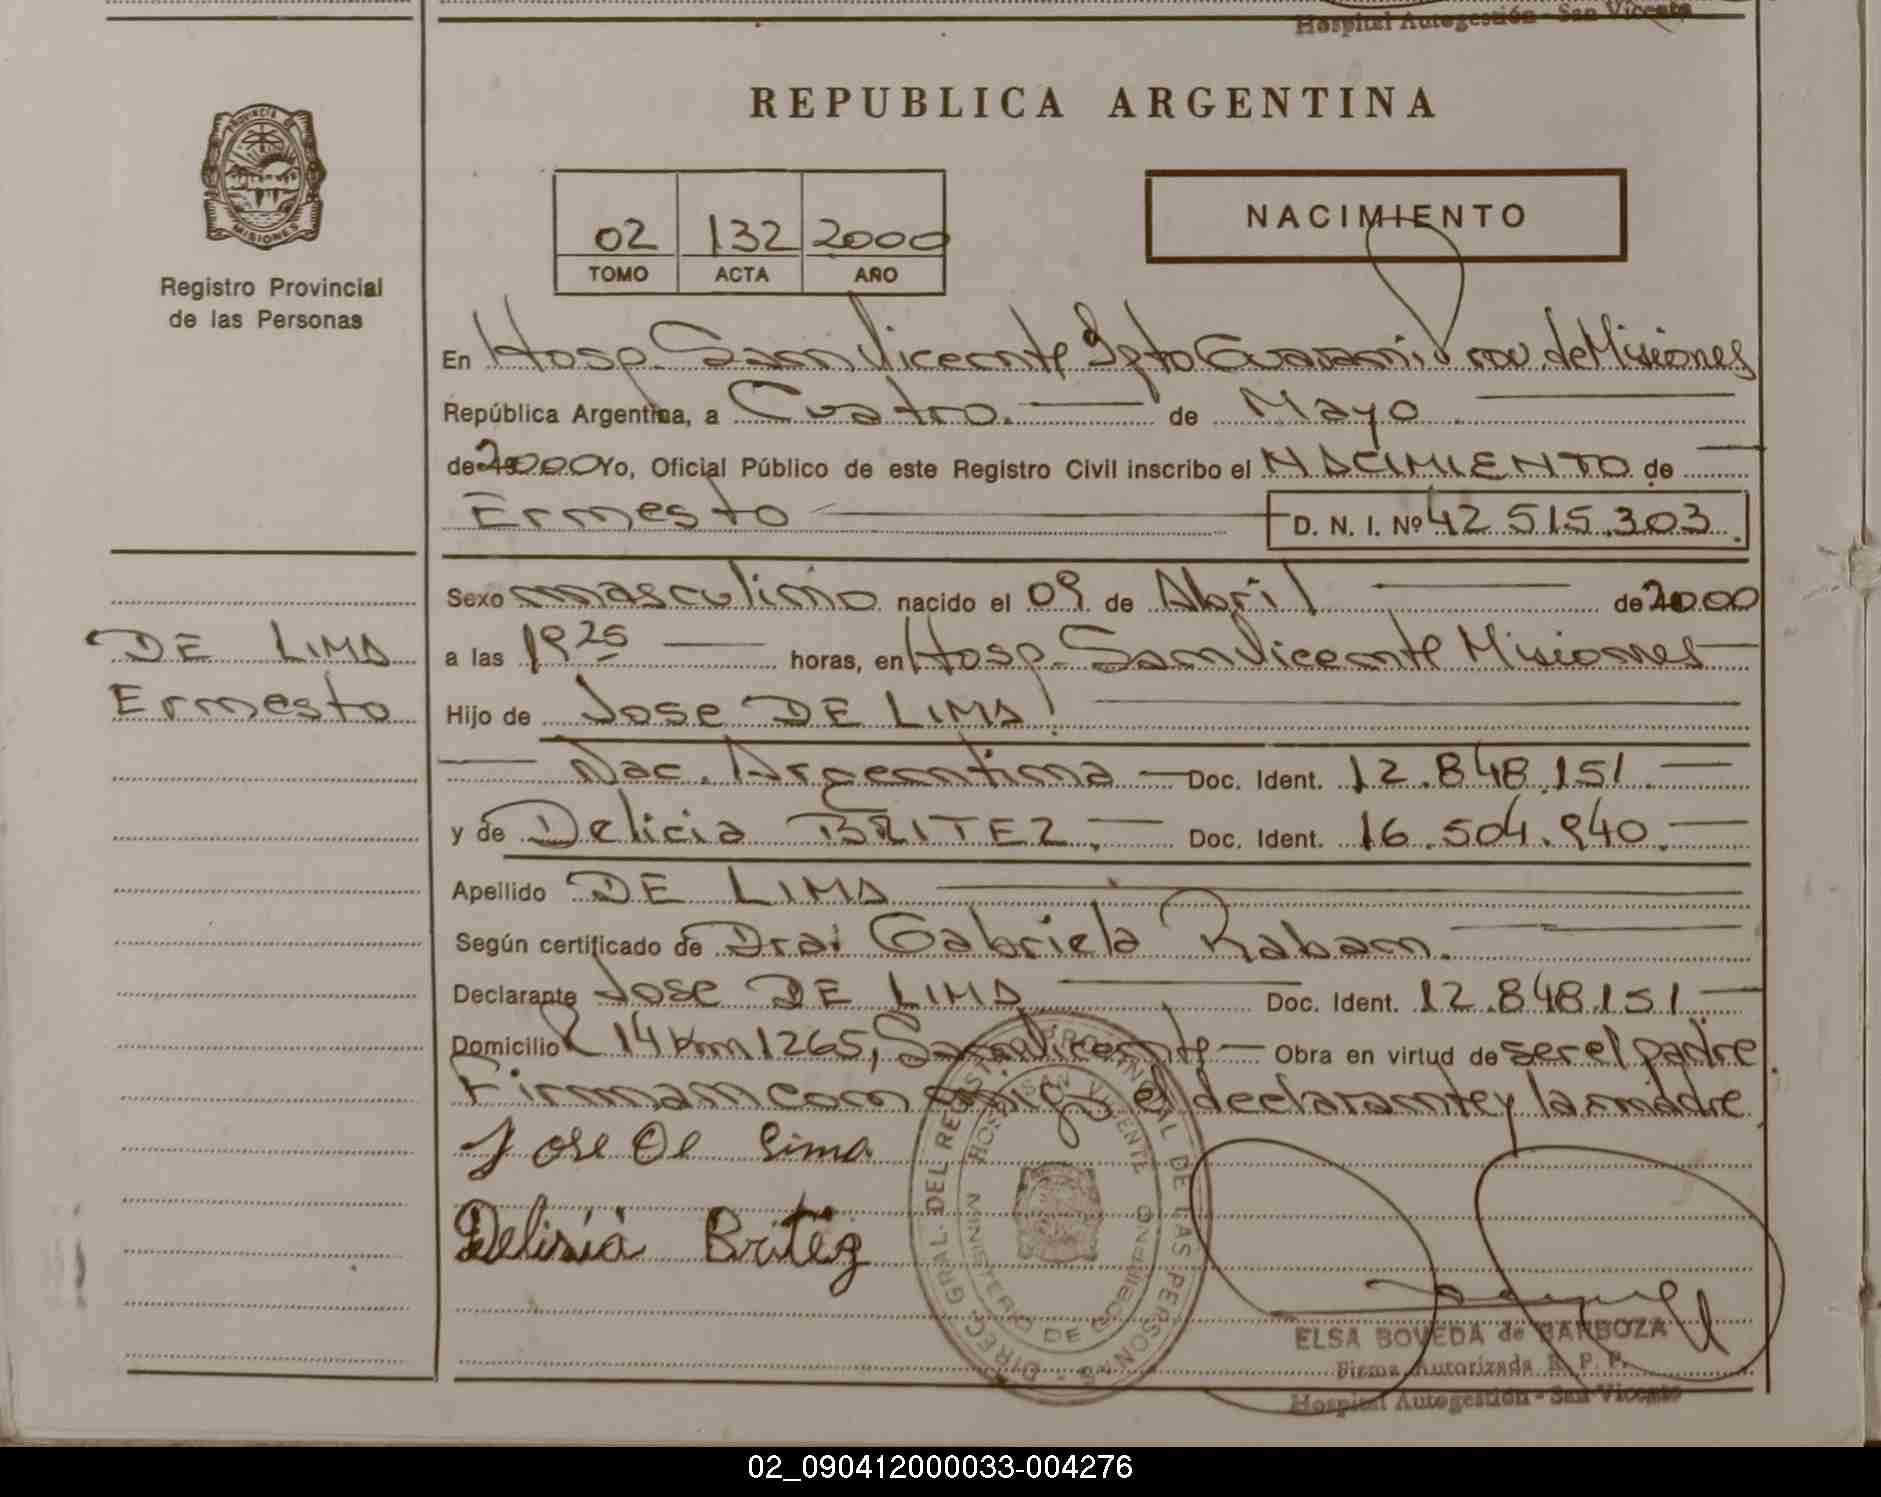 Hospital Autogestión - San Vicente
REPUBLICA ARGENTINA
PROVINCIA DE
MISIONES
Registro Provincial
de las Personas
02 132 2000
TOMO ACTA AÑO
NACIMIENTO
En Hosp. San Vicente Dpto Guarani Prov. de Misiones
República Argentina, a Cuatro. de Mayo
de 2000 Yo, Oficial Público de este Registro Civil inscribo el NACIMIENTO de
Ernesto D. N. I. Nº 42 515.303
Sexo masculino nacido el 09 de Abril de 2000
a las 19 25 horas, en Hosp. San Vicente Misiones
DE LIMA
Ernesto
Hijo de Jose DE LIMA
Nac. Argentina Doc. Ident. 12.848.151
y de Delicia BRITEZ. Doc. Ident. 16.504.940.
Apellido DE LIMA
Según certificado de Dra. Gabriela Raban.
Declarante Jose DE LIMA Doc. Ident. 12.848.151
Domicilio R 14 Km 1265, San Vicente Obra en virtud de ser el padre
Firman conmigo el declarante y la madre
Jose De Lima
Delisia Britez
DIREC. GRAL. DEL REGISTRO PROVINCIAL DE LAS PERSONAS
HOSP. SAN VICENTE
MINISTERIO DE GOBIERNO
ELSA BOVEDA de BARBOZA
Firma Autorizada R. P. P.
Hospital Autogestión - San Vicente
02_090412000033-004276